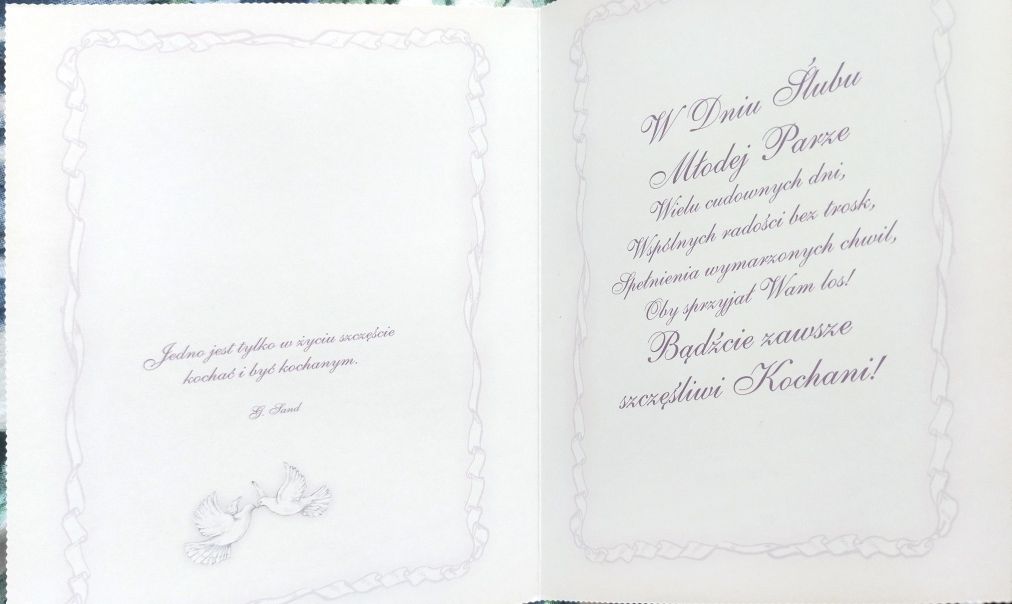 Jedno jest tylko w życiu szczęście
kochać i być kochanym.
G. Sand
W Dniu Ślubu
Młodej Parze
Wielu cudownych dni,
Wspólnych radości bez trosk,
Spełnienia wymarzonych chwil,
Oby sprzyjał Wam los!
Bądźcie zawsze
szczęśliwi Kochani!